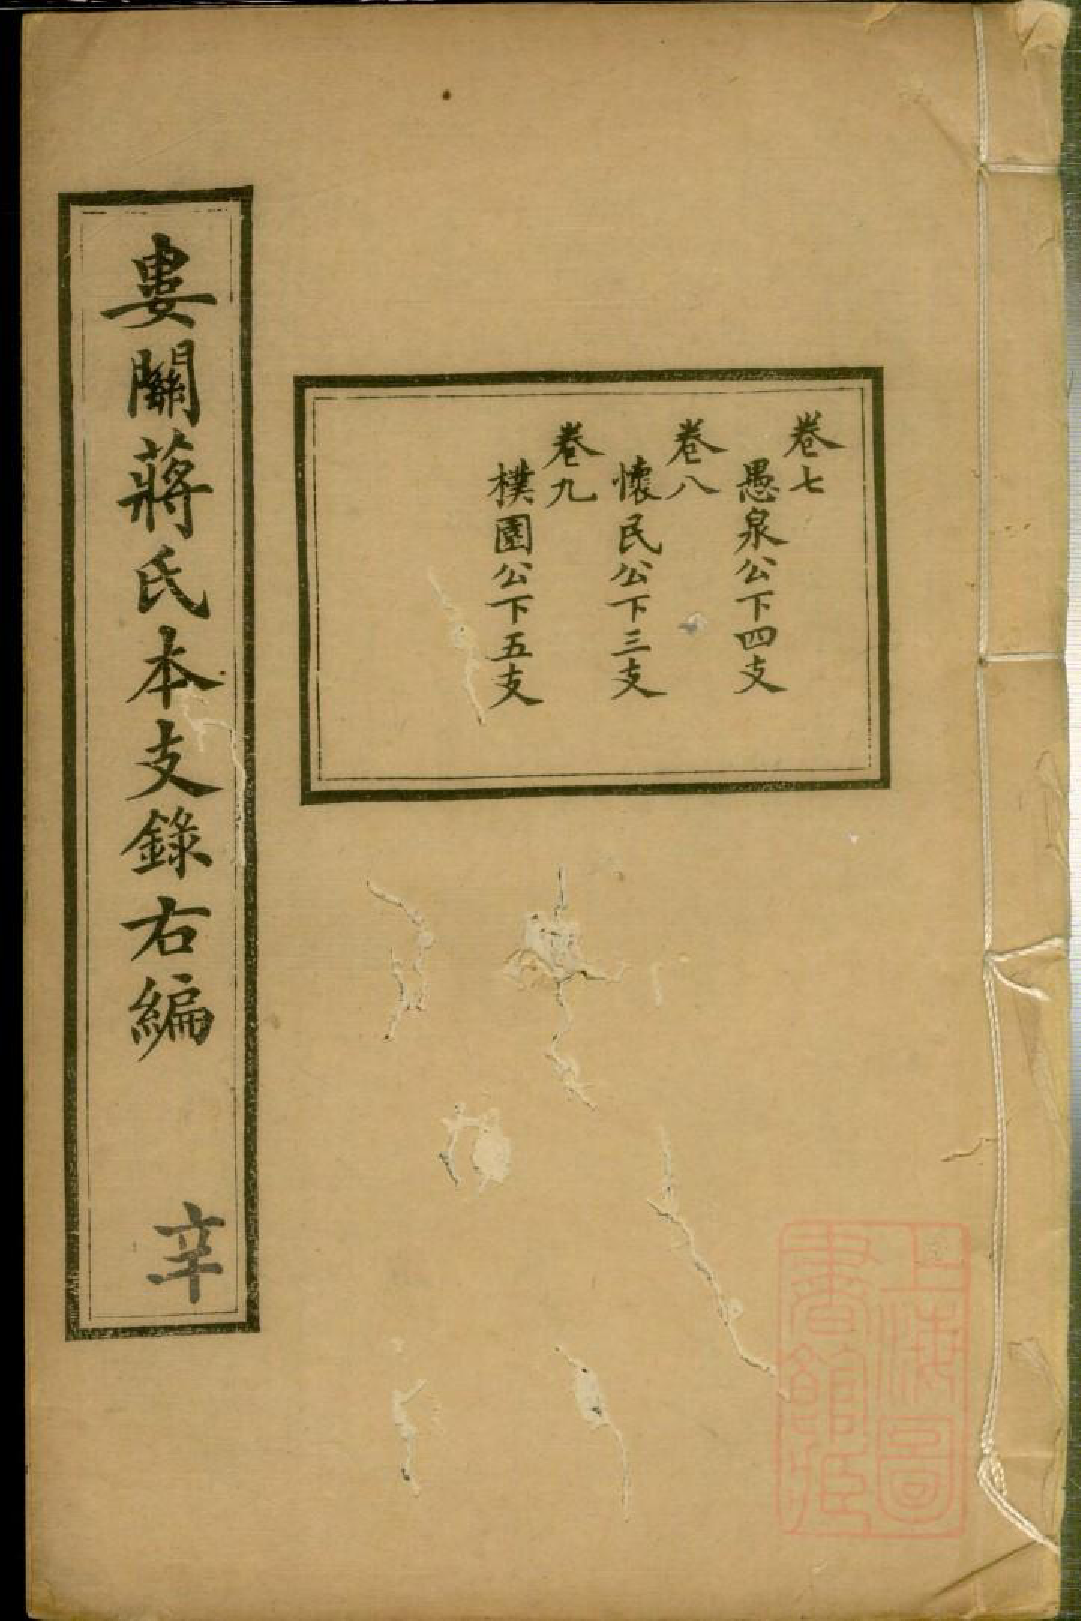 卷七
愚泉公下四支
卷八
懷民公下三支
卷九
樸園公下五支
婁關蔣氏本支錄右編
辛
上海圖
書館藏